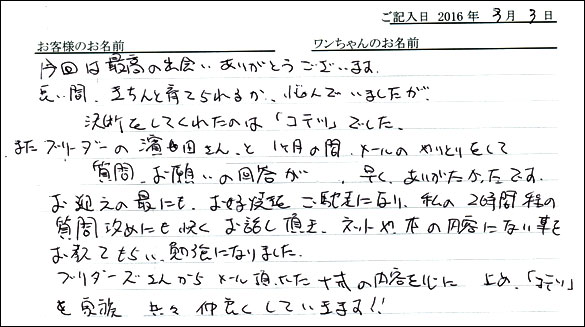 ご記入日 2016 年 3 月 3 日
お客様のお名前 ワンちゃんのお名前
今回は最高の出会いありがとうございます。
長い間、きちんと育てられるか、悩んでいましたが、
決断をしてくれたのは「コテツ」でした。
またブリーダーの濱田さんと1ヶ月の間、メールのやりとりをして
質問、お願いの回答が、早く、ありがたかったです。
お迎えの際にも、お好焼をご馳走になり、私の2時間程の
質問攻めにも快くお話し頂き、ネットや本の内容にない事を
お教えてもらい、勉強になりました。
ブリーダーズさんからメール頂いた の内容を に 、「コテツ」
を家族 共々仲良くしていきます!!